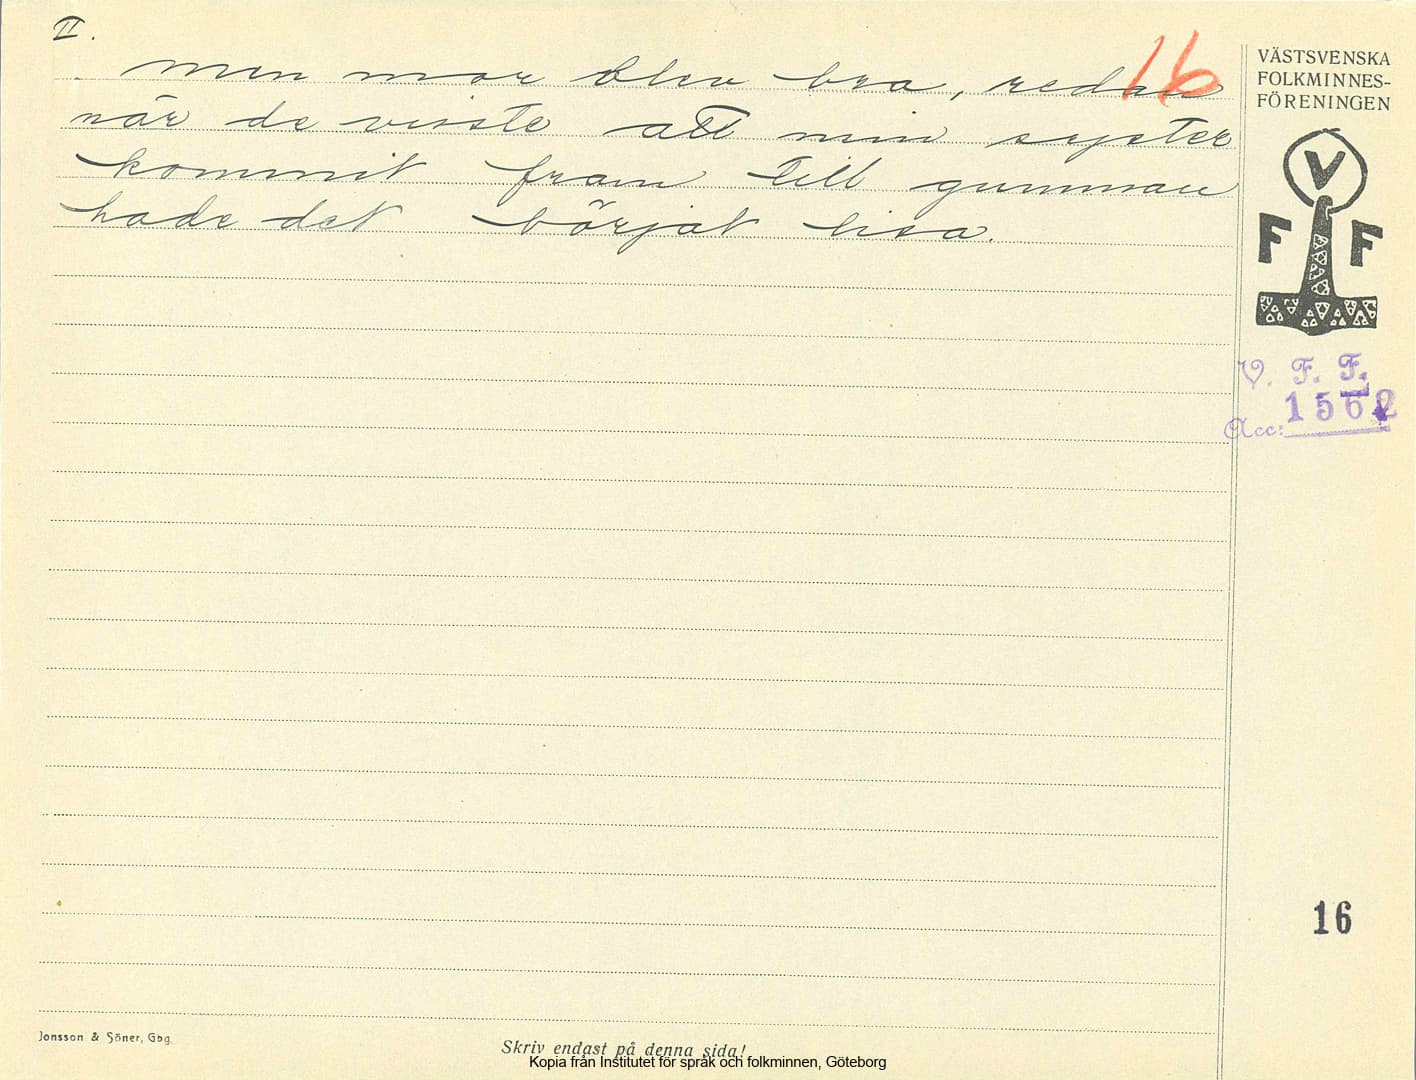 II.
16
men mor blev bra, redan
när de visste att min syster
kommit fram till gumman
hade det börjat lisa.
VÄSTSVENSKA
FOLKMINNES-
FÖRENINGEN
V
F F
V. F. F.
Acc: 1562
16
Jonsson & Söner, Gbg.
Skriv endast på denna sida!
Kopia från Institutet för språk och folkminnen, Göteborg